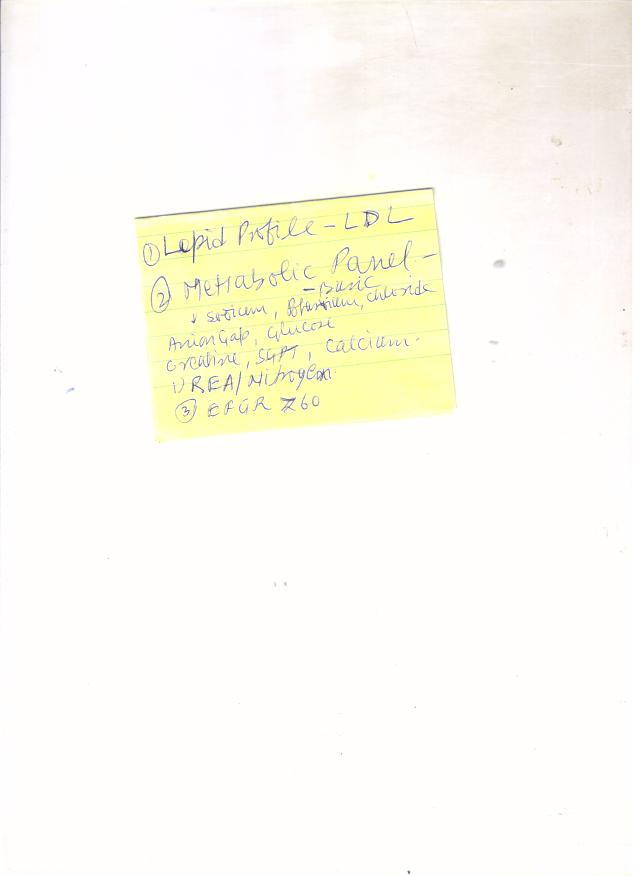 ① Lepid Profile - LDL
② Mettabolic Panel -
- Basic
sodium, chloride
Anion Gap, Glucose
creatine, SGPT, Calcium.
UREA/Nitrogen
③ EFGR 60